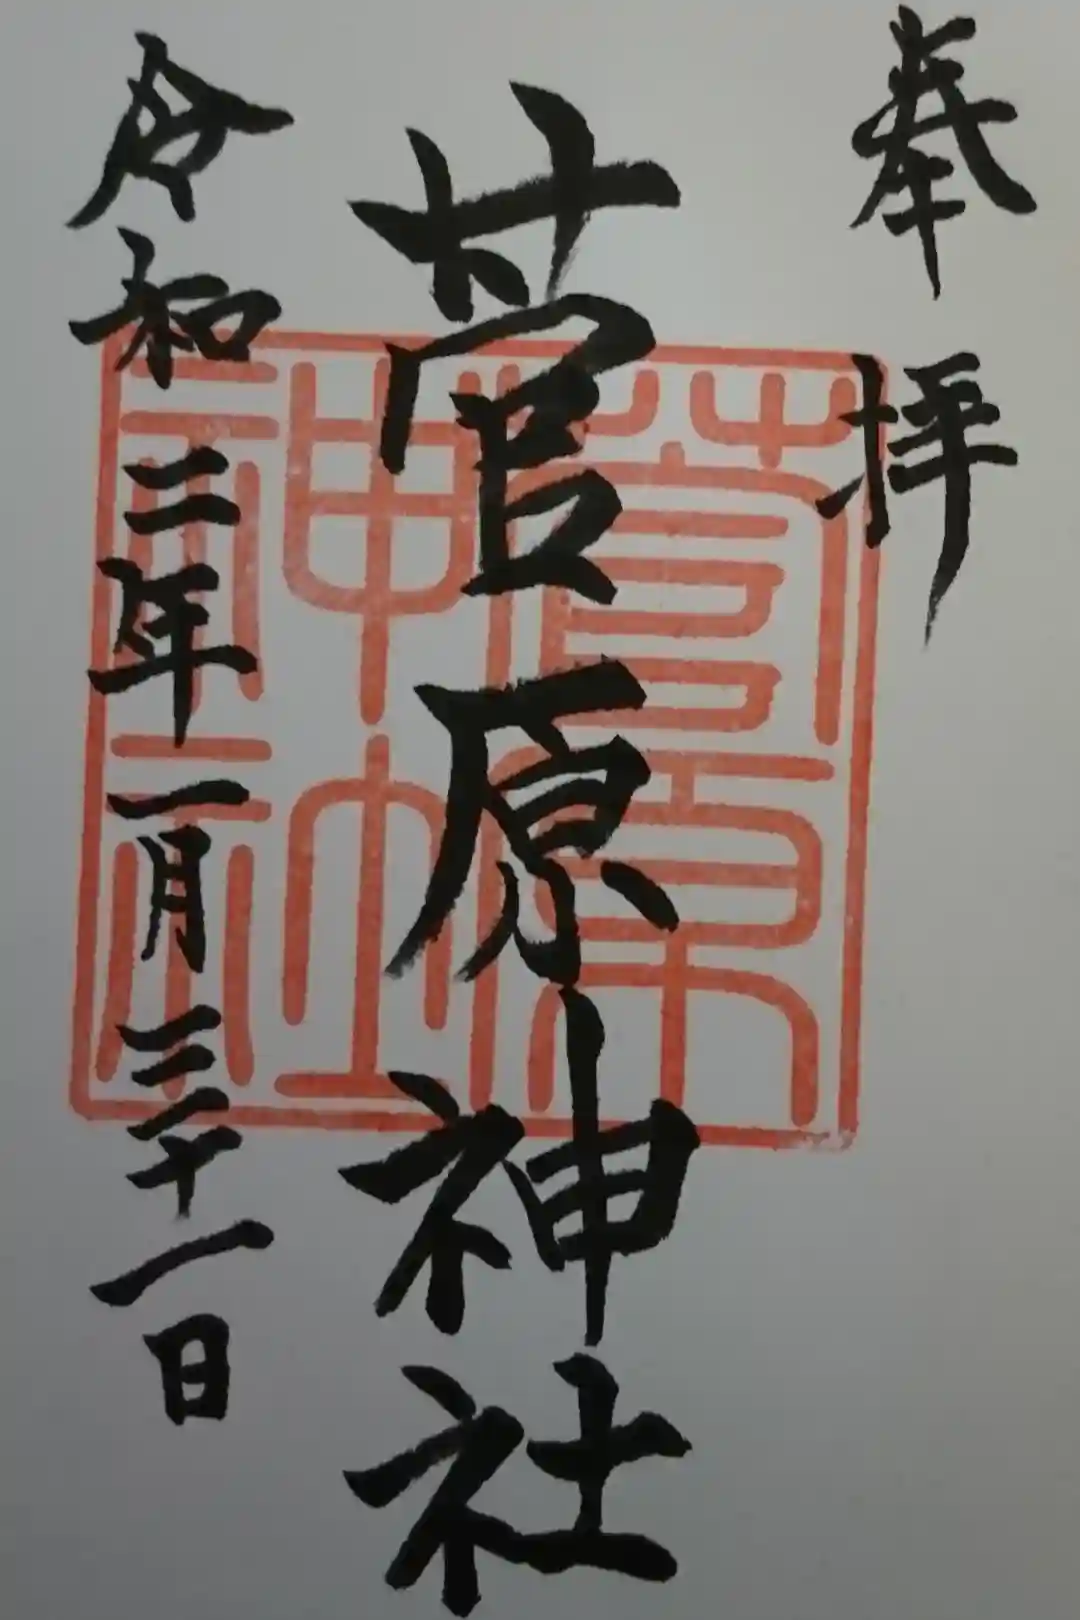 奉拝
菅原神社
令和二年一月三十一日
菅原神社